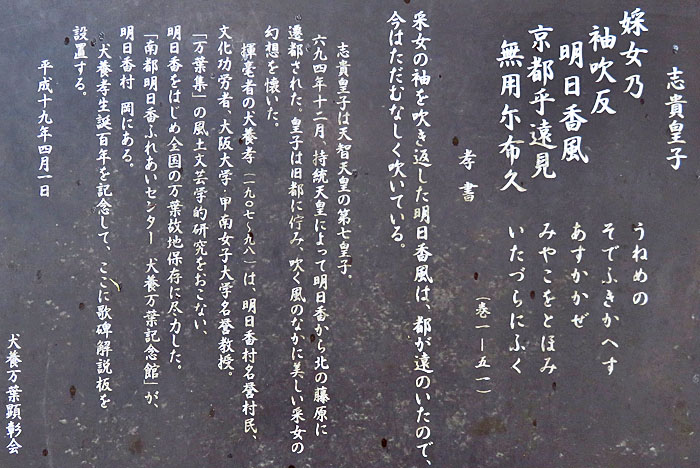 志貴皇子
婇女乃
袖吹反
明日香風
京都乎遠見
無用尓布久
孝書
うねめの
そでふきかへす
あすかかぜ
みやこをとほみ
いたづらにふく
(巻一―五一)
采女の袖を吹き返した明日香風は、都が遠のいたので、
今はただむなしく吹いている。
志貴皇子は天智天皇の第七皇子。
六九四年十二月、持統天皇によって明日香から北の藤原に
遷都された。皇子は旧都に佇み、吹く風のなかに美しい采女の
幻想を懐いた。
揮毫者の犬養孝(一九〇七~九八)は、明日香村名誉村民、
文化功労者、大阪大学・甲南女子大学名誉教授。
「万葉集」の風土文芸学的研究をおこない、
明日香をはじめ全国の万葉故地保存に尽力した。
「南都明日香ふれあいセンター 犬養万葉記念館」が、
明日香村 岡にある。
犬養孝生誕百年を記念して、ここに歌碑解説板を
設置する。
平成十九年四月一日
犬養万葉顕彰会